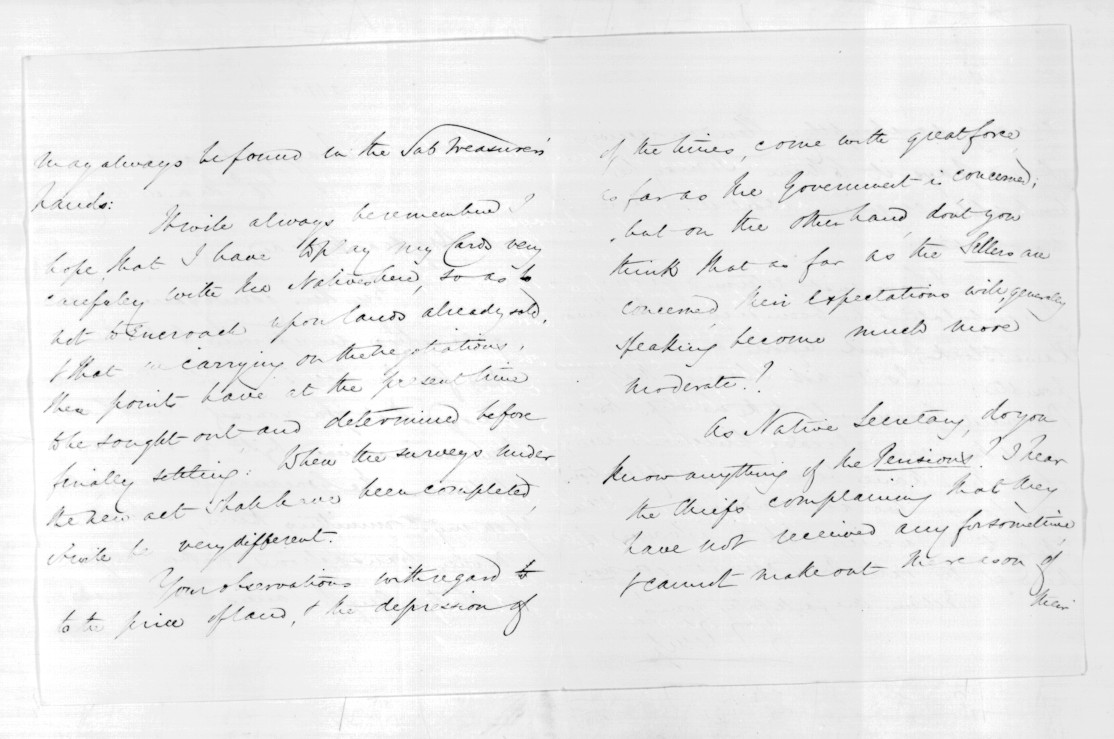 may always be found in the Sub Treasurer's
hands:
It will always be remembered I
hope, that I have to play my Cards very
carefully with the Natives here, so as to
not to encroach upon lands already sold,
& that in carrying on the negotiations,
these points have at the present time
to be sought out and determined before
finally settling: When the surveys under
the new act shall have been completed,
it will be very different.
Your observations with regard to
to the price of land, & the depression of
of the times, come with great force
as far as the Government is concerned;
but on the other hand, dont you
think that as far as the Sellers are
concerned, their expectations will, generally
speaking become much more
moderate?
As Native Secretary, do you
know anything of the Pensions? I hear
the Chiefs complaining that they
have not received any for sometime,
& cannot make out the reason of
their